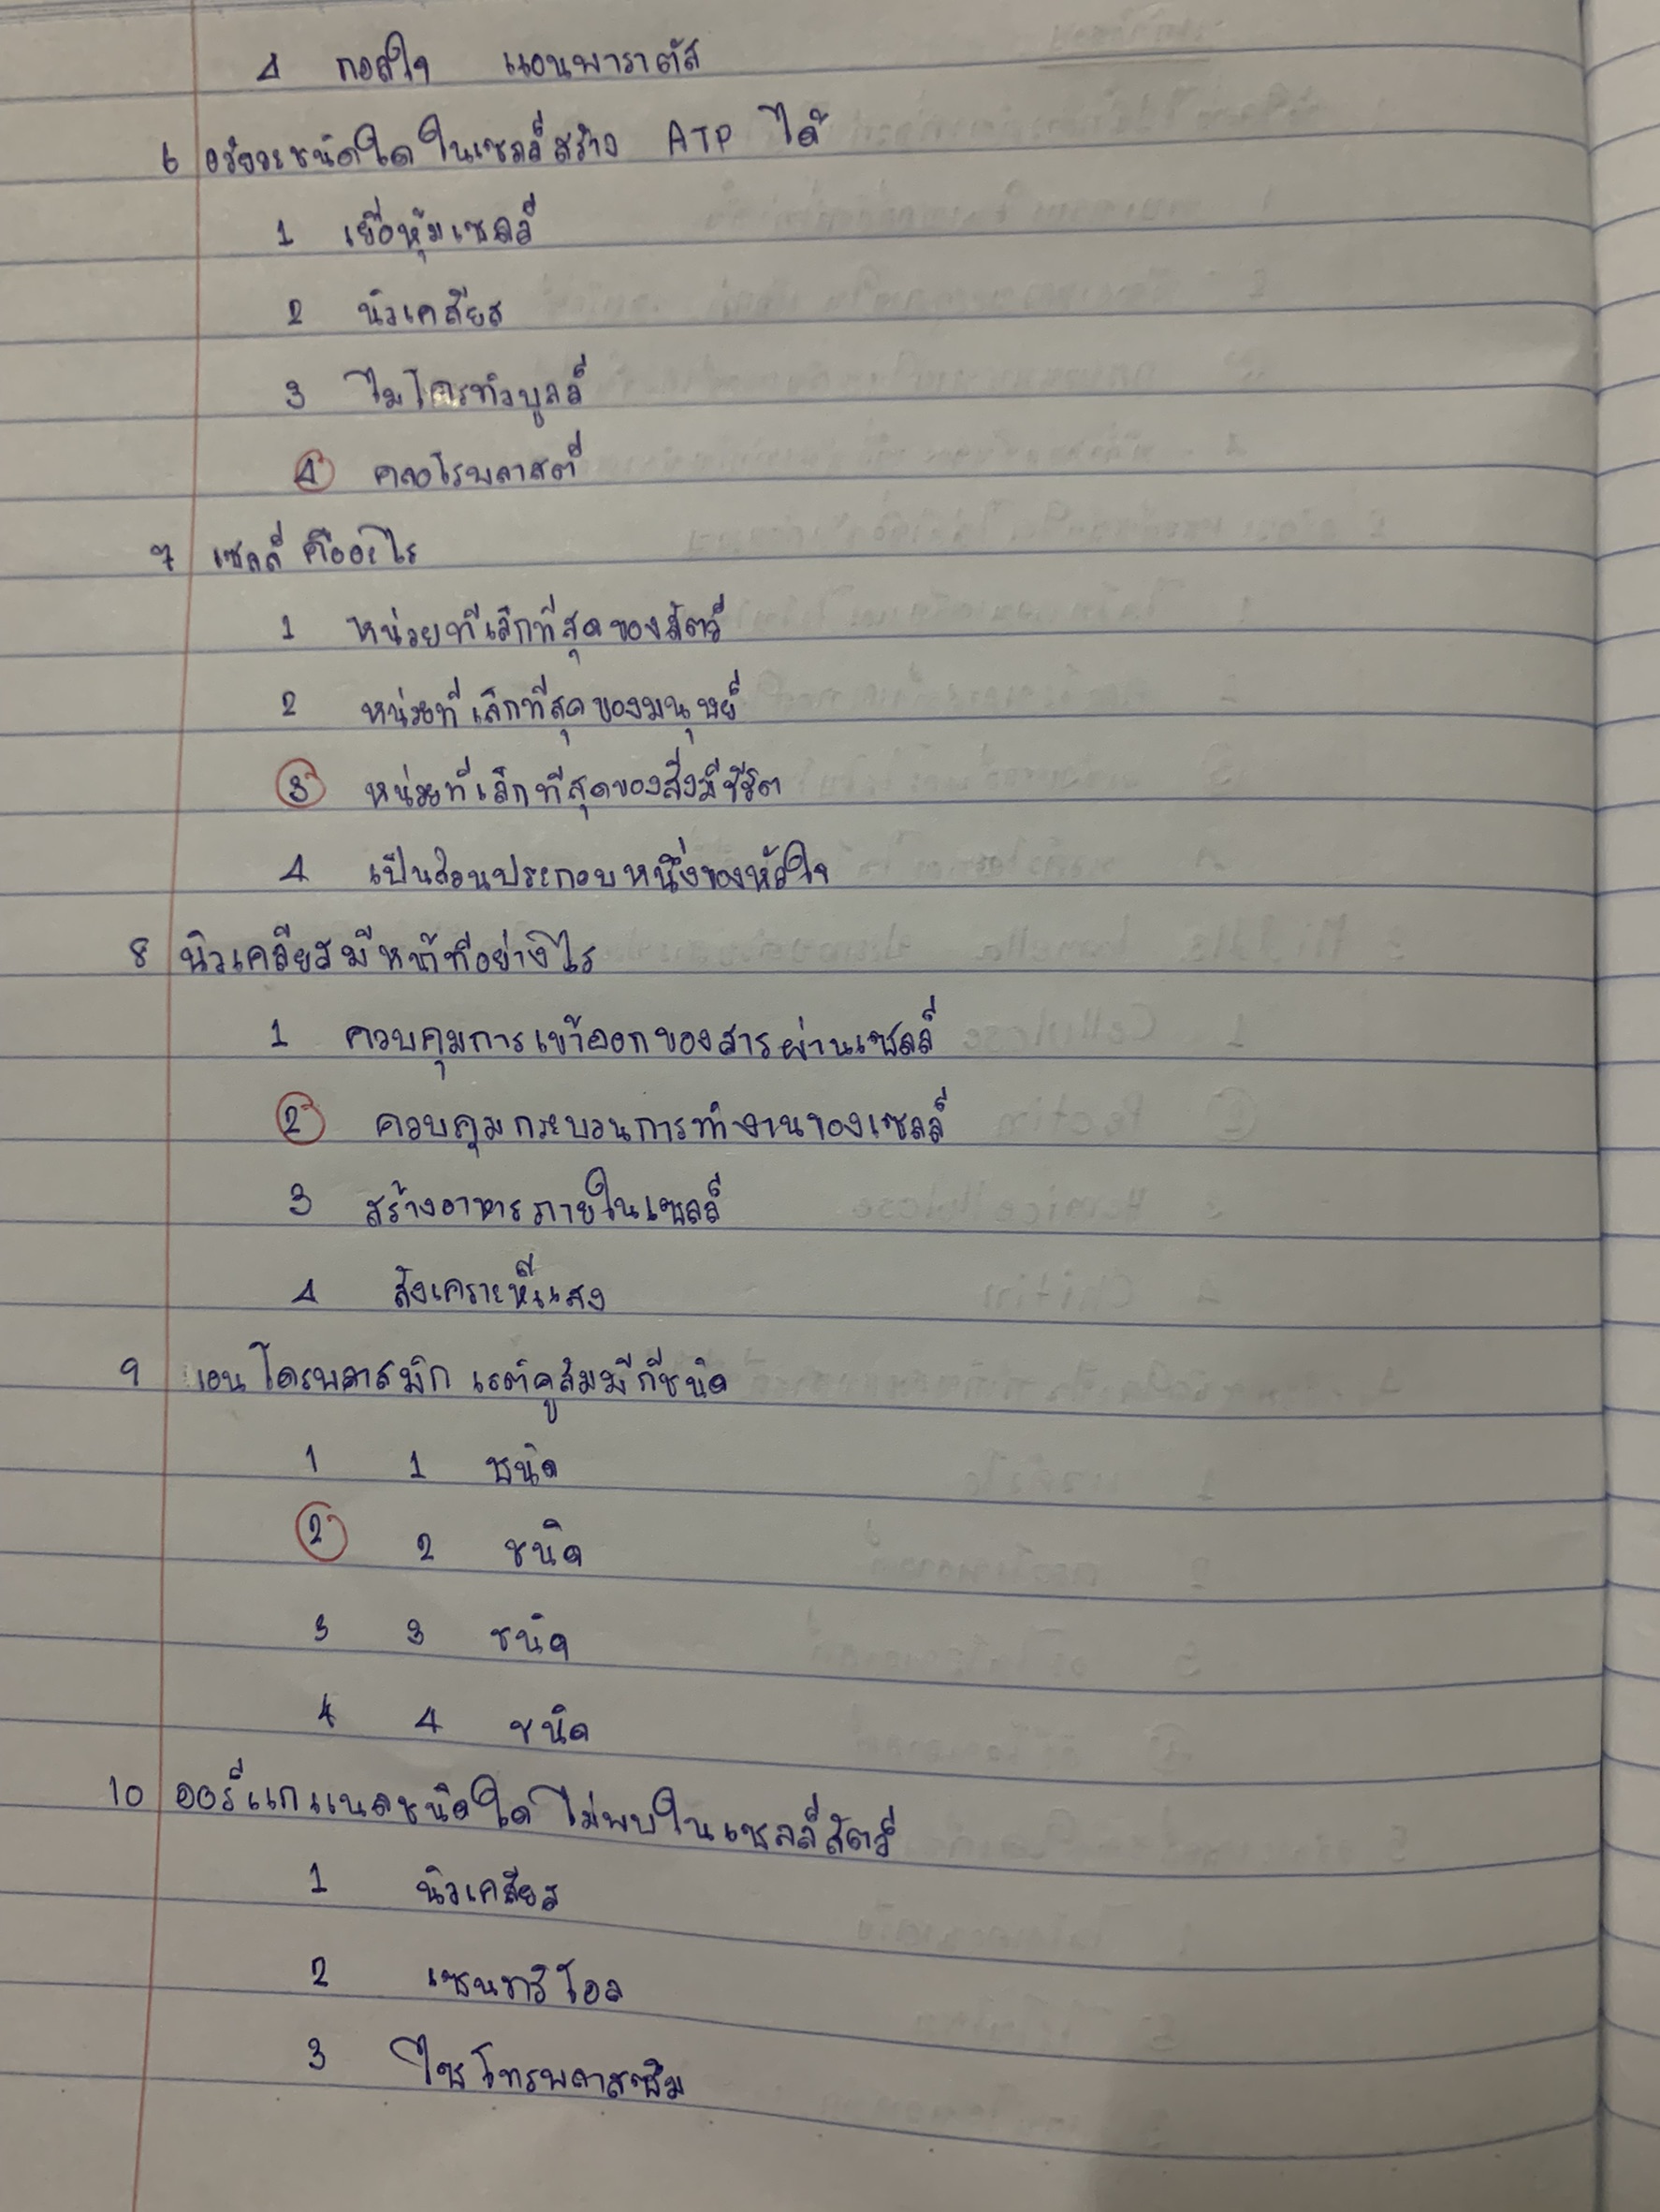 4 กอลใจ แอนพาราตัส
6 อวัยวะชนิดใดในเซลล์สร้าง ATP ได้
1 เยื่อหุ้มเซลล์
2 นิวเคลียส
3 ไมโครทิวบูลล์
4 คลอโรพลาสต์
7 เซลล์ คืออะไร
1 หน่วยที่เล็กที่สุดของสัตว์
2 หน่วยที่เล็กที่สุดของมนุษย์
3 หน่วยที่เล็กที่สุดของสิ่งมีชีวิต
4 เป็นส่วนประกอบหนึ่งของหัวใจ
8 นิวเคลียสมีหน้าที่อย่างไร
1 ควบคุมการเข้าออกของสารผ่านเซลล์
2 ควบคุมกระบวนการทำงานของเซลล์
3 สร้างอาหารภายในเซลล์
4 สังเคราะห์แสง
9 เอนโดรพลาสมิก เรติคูลัมมีกี่ชนิด
1 1 ชนิด
2 2 ชนิด
3 3 ชนิด
4 4 ชนิด
10 ออร์แกแนลชนิดใด ไม่พบในเซลล์สัตว์
1 นิวเคลียส
2 เซนทริโอล
3 ไซโทรพลาสซึม